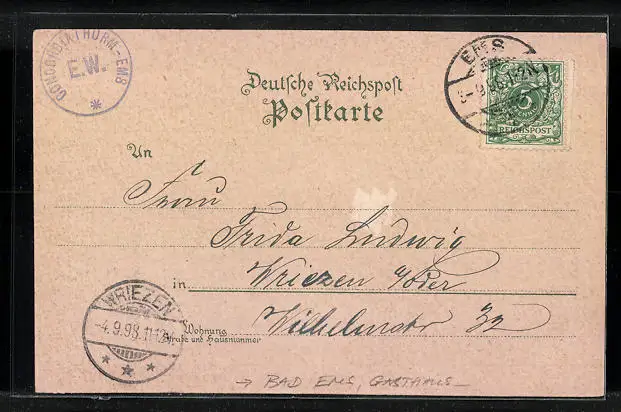 CONCORDIATHURM-EMS
E.W.
*
EMS
Deutsche Reichspost
Postkarte
5
REICHSPOST
An
Frau
Frida Ludwig
in Wriezen a/Oder
Wohnung
Straße und Hausnummer
Wilhelmstr 32
WRIEZEN
-4.9.98.11-12V
* * *
→ BAD EMS, GASTHAUS